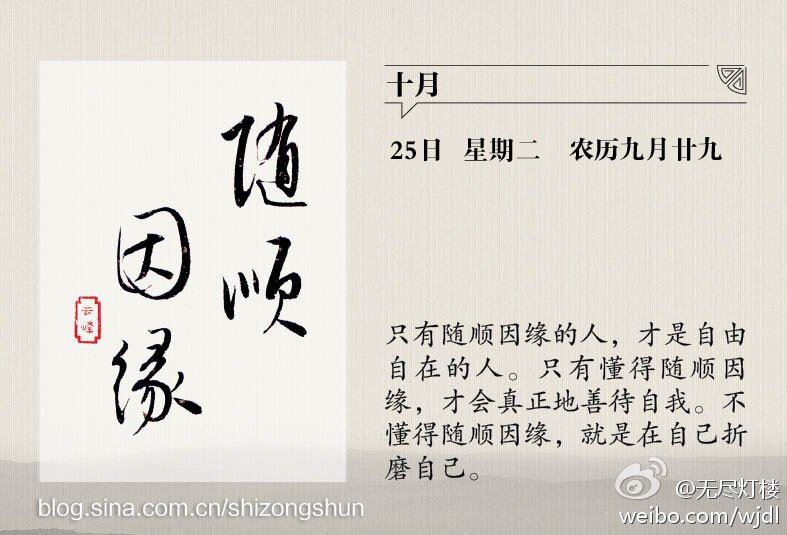 随顺
因缘
云峰
十月
25日 星期二 农历九月廿九
只有随顺因缘的人，才是自由
自在的人。只有懂得随顺因
缘，才会真正地善待自我。不
懂得随顺因缘，就是在自己折
磨自己。
blog.sina.com.cn/shizongshun
@无尽灯楼
weibo.com/wjdl